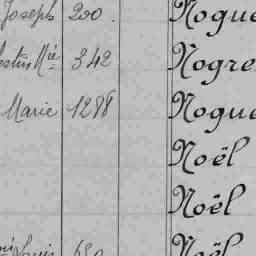 Joseph 200. Nogue
342 Nogre
Marie 1288 Nogue
Noël
Noël
Louis Noël